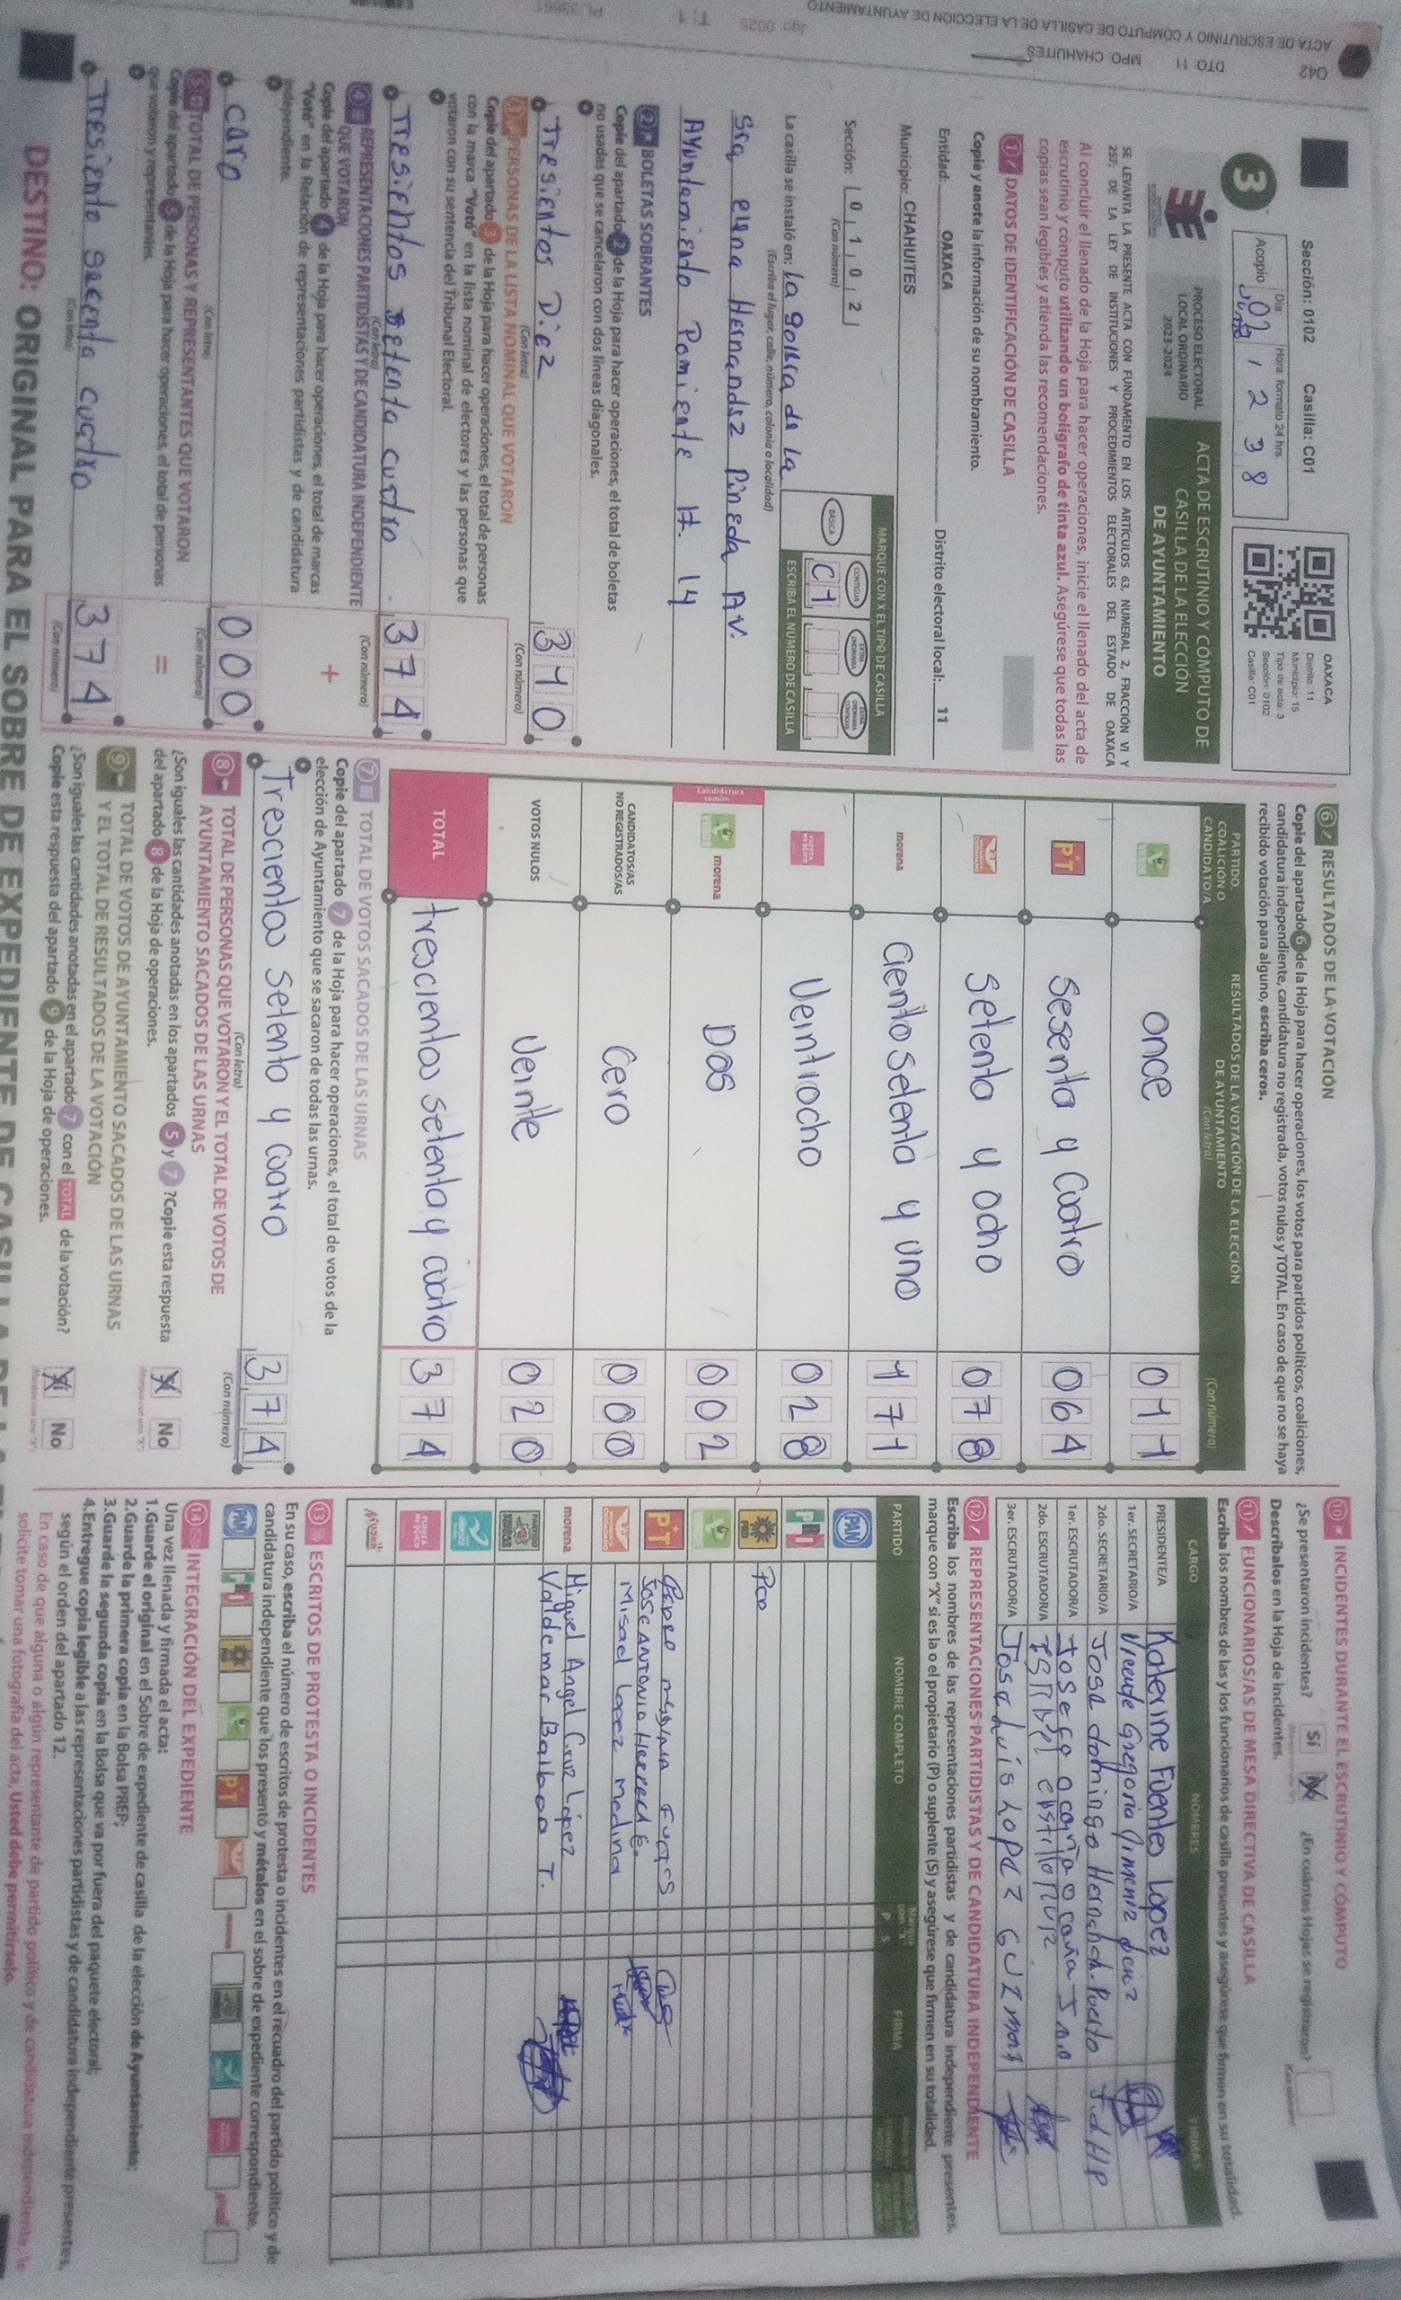 Q42
DTO. 11 MPO. CHAHUITES
ACTA DE ESCRUTINIO Y CÓMPUTO DE CASILLA DE LA ELECCIÓN DE AYUNTAMIENTO
Sección: 0102 Casilla: C01
3
Acopio
Día:
02
Junio
Hora: formato 24 hrs.
1 2 3 8
OAXACA
Distrito: 11
Municipio: 15
Tipo de acta: 3
Sección: 0102
Casilla: C01
PROCESO ELECTORAL
LOCAL ORDINARIO
2023-2024
ACTA DE ESCRUTINIO Y CÓMPUTO DE
CASILLA DE LA ELECCIÓN
DE AYUNTAMIENTO
SE LEVANTA LA PRESENTE ACTA CON FUNDAMENTO EN LOS ARTÍCULOS 63, NUMERAL 2, FRACCIÓN VI Y
257; DE LA LEY DE INSTITUCIONES Y PROCEDIMIENTOS ELECTORALES DEL ESTADO DE OAXACA
Al concluir el llenado de la Hoja para hacer operaciones, inicie el llenado del acta de
escrutinio y cómputo utilizando un bolígrafo de tinta azul. Asegúrese que todas las
copias sean legibles y atienda las recomendaciones.
1 DATOS DE IDENTIFICACIÓN DE CASILLA
Copie y anote la información de su nombramiento.
Entidad: OAXACA Distrito electoral local: 11
Municipio: CHAHUITES
Sección: 0 1 0 2
(Con número)
MARQUE CON X EL TIPO DE CASILLA
BÁSICA
CONTIGUA
C1
ESCRIBA EL NÚMERO DE CASILLA
La casilla se instaló en: La galera de la
(Escriba el lugar, calle, número, colonia o localidad)
Sra Elena Hernandez Pineda Av.
Ayuntamiento Poniente 14
2 BOLETAS SOBRANTES
Copie del apartado 2 de la Hoja para hacer operaciones, el total de boletas
no usadas que se cancelaron con dos líneas diagonales.
Tresientos Diez 3 1 0
(Con letra) (Con número)
3 PERSONAS DE LA LISTA NOMINAL QUE VOTARON
Copie del apartado 3 de la Hoja para hacer operaciones, el total de personas
con la marca "Votó" en la lista nominal de electores y las personas que
votaron con su sentencia del Tribunal Electoral.
Tresientos setenta cuatro 3 7 4
(Con letra) (Con número)
4 REPRESENTACIONES PARTIDISTAS Y DE CANDIDATURA INDEPENDIENTE
QUE VOTARON
Copie del apartado 4 de la Hoja para hacer operaciones, el total de marcas
"Votó" en la Relación de representaciones partidistas y de candidatura
independiente.
+
cero 0 0 0
(Con letra) (Con número)
5 TOTAL DE PERSONAS Y REPRESENTANTES QUE VOTARON
Copie del apartado 5 de la Hoja para hacer operaciones, el total de personas
que votaron y representantes.
=
Tresiento cuatro 3 7 4
(Con letra) (Con número)
6 RESULTADOS DE LA VOTACIÓN
Copie del apartado 6 de la Hoja para hacer operaciones, los votos para partidos políticos, coaliciones,
candidatura independiente, candidatura no registrada, votos nulos y TOTAL. En caso de que no se haya
recibido votación para alguno, escriba ceros.
PARTIDO, COALICIÓN O CANDIDATO/A
RESULTADOS DE LA VOTACIÓN DE LA ELECCIÓN DE AYUNTAMIENTO
(Con letra) (Con número)
once 0 1 1
PT sesenta y cuatro 0 6 4
setenta y ocho 0 7 8
morena ciento setenta y uno 1 7 1
veintiocho 0 2 8
Candidatura común
morena Dos 0 0 2
CANDIDATOS/AS NO REGISTRADOS/AS cero 0 0 0
VOTOS NULOS veinte 0 2 0
TOTAL trescientos setenta y cuatro 3 7 4
7 TOTAL DE VOTOS SACADOS DE LAS URNAS
Copie del apartado 7 de la Hoja para hacer operaciones, el total de votos de la
elección de Ayuntamiento que se sacaron de todas las urnas.
Trescientos setenta y cuatro 3 7 4
(Con letra) (Con número)
8 TOTAL DE PERSONAS QUE VOTARON Y EL TOTAL DE VOTOS DE
AYUNTAMIENTO SACADOS DE LAS URNAS
¿Son iguales las cantidades anotadas en los apartados 5 y 7 ? Copie esta respuesta
del apartado 8 de la Hoja de operaciones.
Sí No
9 TOTAL DE VOTOS DE AYUNTAMIENTO SACADOS DE LAS URNAS
Y EL TOTAL DE RESULTADOS DE LA VOTACIÓN
¿Son iguales las cantidades anotadas en el apartado 7 con el TOTAL de la votación?
Copie esta respuesta del apartado 9 de la Hoja de operaciones.
Sí No
10 INCIDENTES DURANTE EL ESCRUTINIO Y CÓMPUTO
¿Se presentaron incidentes? Sí No ¿En cuántas Hojas se registraron?
Descríbalos en la Hoja de incidentes.
11 FUNCIONARIOS/AS DE MESA DIRECTIVA DE CASILLA
Escriba los nombres de las y los funcionarios de casilla presentes y asegúrese que firmen en su totalidad.
CARGO NOMBRES FIRMAS
PRESIDENTE/A Katerine Fuentes Lopez
1er. SECRETARIO/A Vicente Gregorio
2do. SECRETARIO/A Jose domingo
1er. ESCRUTADOR/A
2do. ESCRUTADOR/A
3er. ESCRUTADOR/A Jose Luis Lopez Guzman
12 REPRESENTACIONES PARTIDISTAS Y DE CANDIDATURA INDEPENDIENTE
Escriba los nombres de las representaciones partidistas y de candidatura independiente presentes,
marque con "X" si es la o el propietario (P) o suplente (S) y asegúrese que firmen en su totalidad.
PARTIDO NOMBRE COMPLETO P S FIRMA
PAN
PRI
PRD
PT
JOSE ANTONIO
Misael Lopez Medina
morena Miguel Angel Cruz López
Valdemar Balboa T.
13 ESCRITOS DE PROTESTA O INCIDENTES
En su caso, escriba el número de escritos de protesta o incidentes en el recuadro del partido político y de
candidatura independiente que los presentó y métalos en el sobre de expediente correspondiente.
14 INTEGRACIÓN DEL EXPEDIENTE
Una vez llenada y firmada el acta:
1.Guarde el original en el Sobre de expediente de casilla de la elección de Ayuntamiento;
2.Guarde la primera copia en la Bolsa PREP;
3.Guarde la segunda copia en la Bolsa que va por fuera del paquete electoral;
4.Entregue copia legible a las representaciones partidistas y de candidatura independiente presentes,
según el orden del apartado 12.
En caso de que alguna o algún representante de partido político y de candidatura independiente, le
solicite tomar una fotografía del acta, Usted debe permitírselo.
DESTINO: ORIGINAL PARA EL SOBRE DE EXPEDIENTE DE CASILLA DE LA